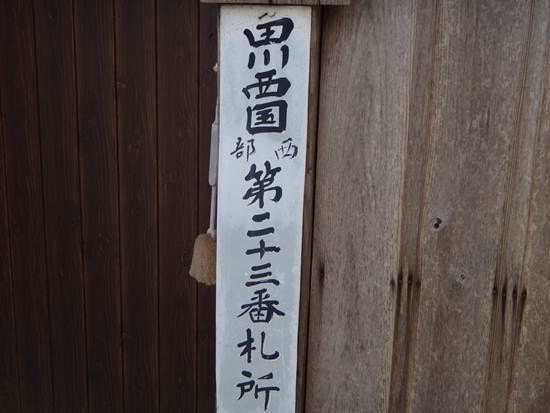 田川西国西部第二十三番札所